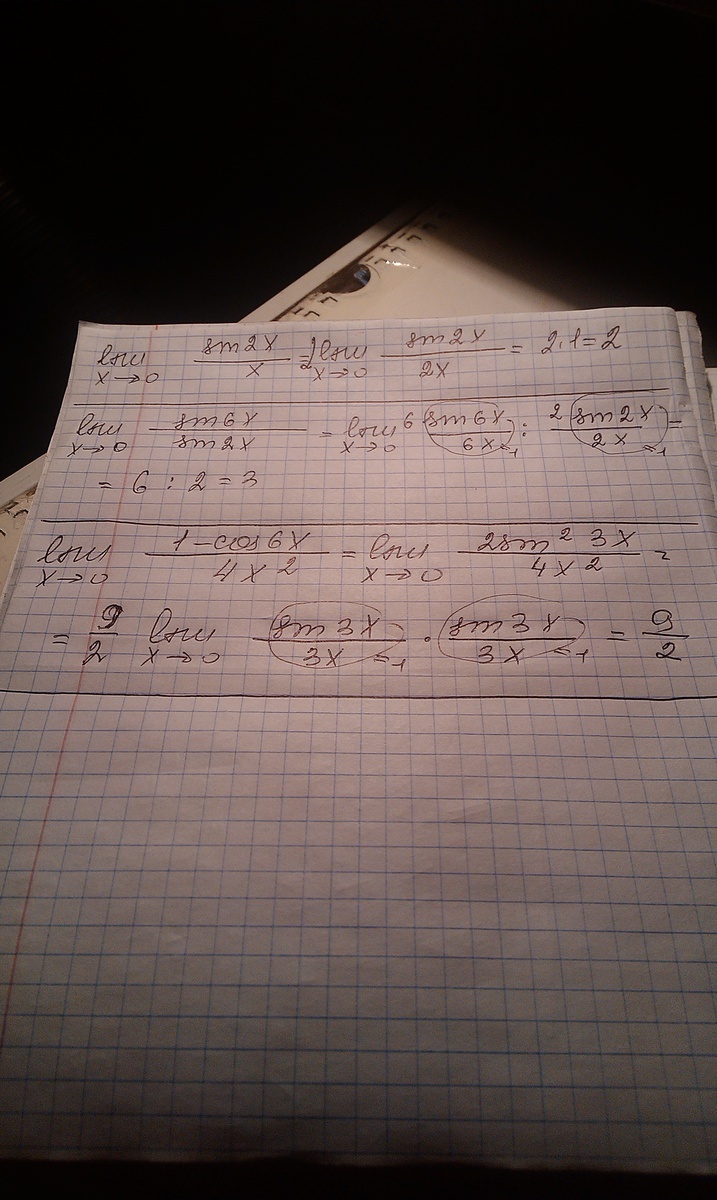 lim x→0 sin2x / x = 2 lim x→0 sin2x / 2x = 2·1=2
lim x→0 sin6x / sin2x = lim x→0 6 sin6x / 6x =1 : 2 sin2x / 2x =1 =
= 6 : 2 = 3
lim x→0 1-cos6x / 4x² = lim x→0 2sin² 3x / 4x² =
= 9/2 lim x→0 sin3x / 3x =1 · sin3x / 3x =1 = 9/2